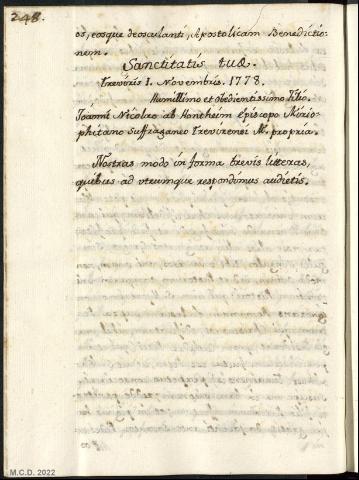 248.
os, eosque deosculanti, Apostolicam Benedictio-
nem.
Sanctitatis tuæ.
Treviris 1. Novembris. 1778.
Humillimo et obedientissimo Filio.
Joanni Nicolao ab Hontheim Episcopo Myrio-
phitano Suffraganeo Trevirensi M. propria.
Nostras modo in forma brevis litteras,
quibus ad utrumque respondimus audietis.
M.C.D. 2022